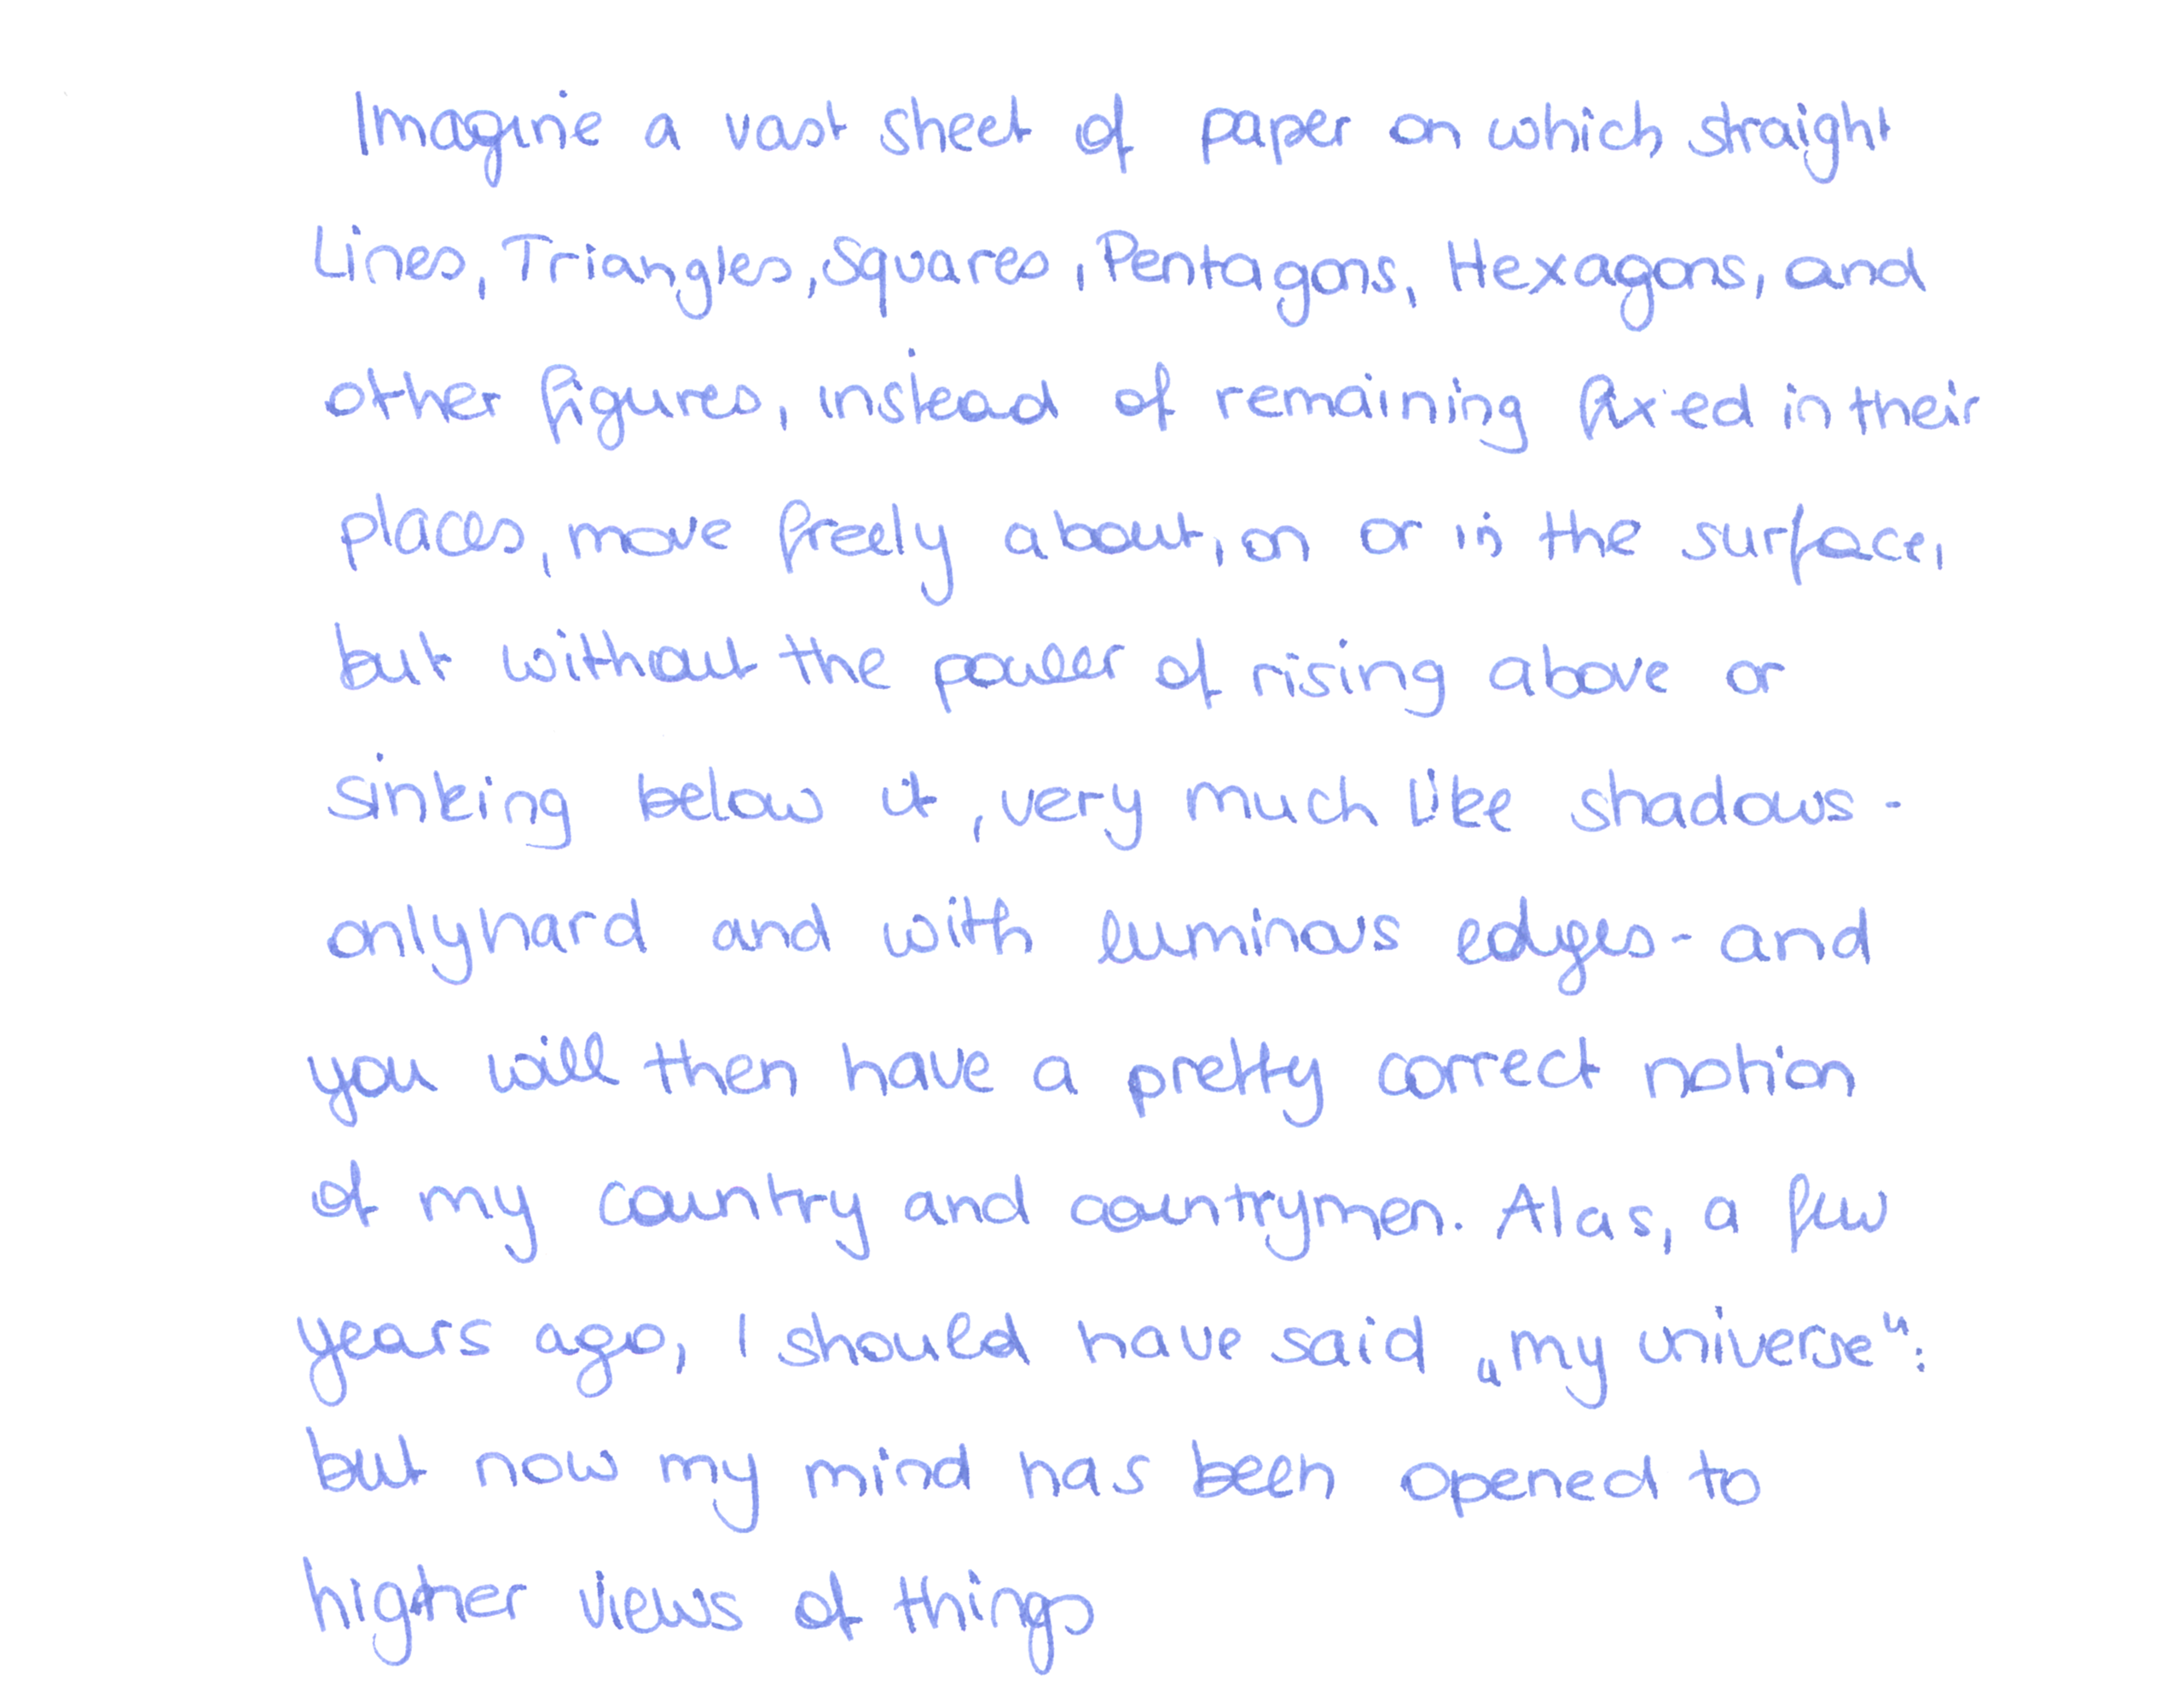 Imagine a vast sheet of paper on which straight
Lines, Triangles, Squares, Pentagons, Hexagons, and
other figures, instead of remaining fixed in their
places, move freely about, on or in the surface,
but without the power of rising above or
sinking below it, very much like shadows -
only hard and with luminous edges - and
you will then have a pretty correct notion
of my country and countrymen. Alas, a few
years ago, I should have said „my universe“:
but now my mind has been opened to
higher views of things